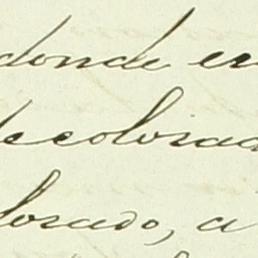 donde en
decolorad
lorado, a